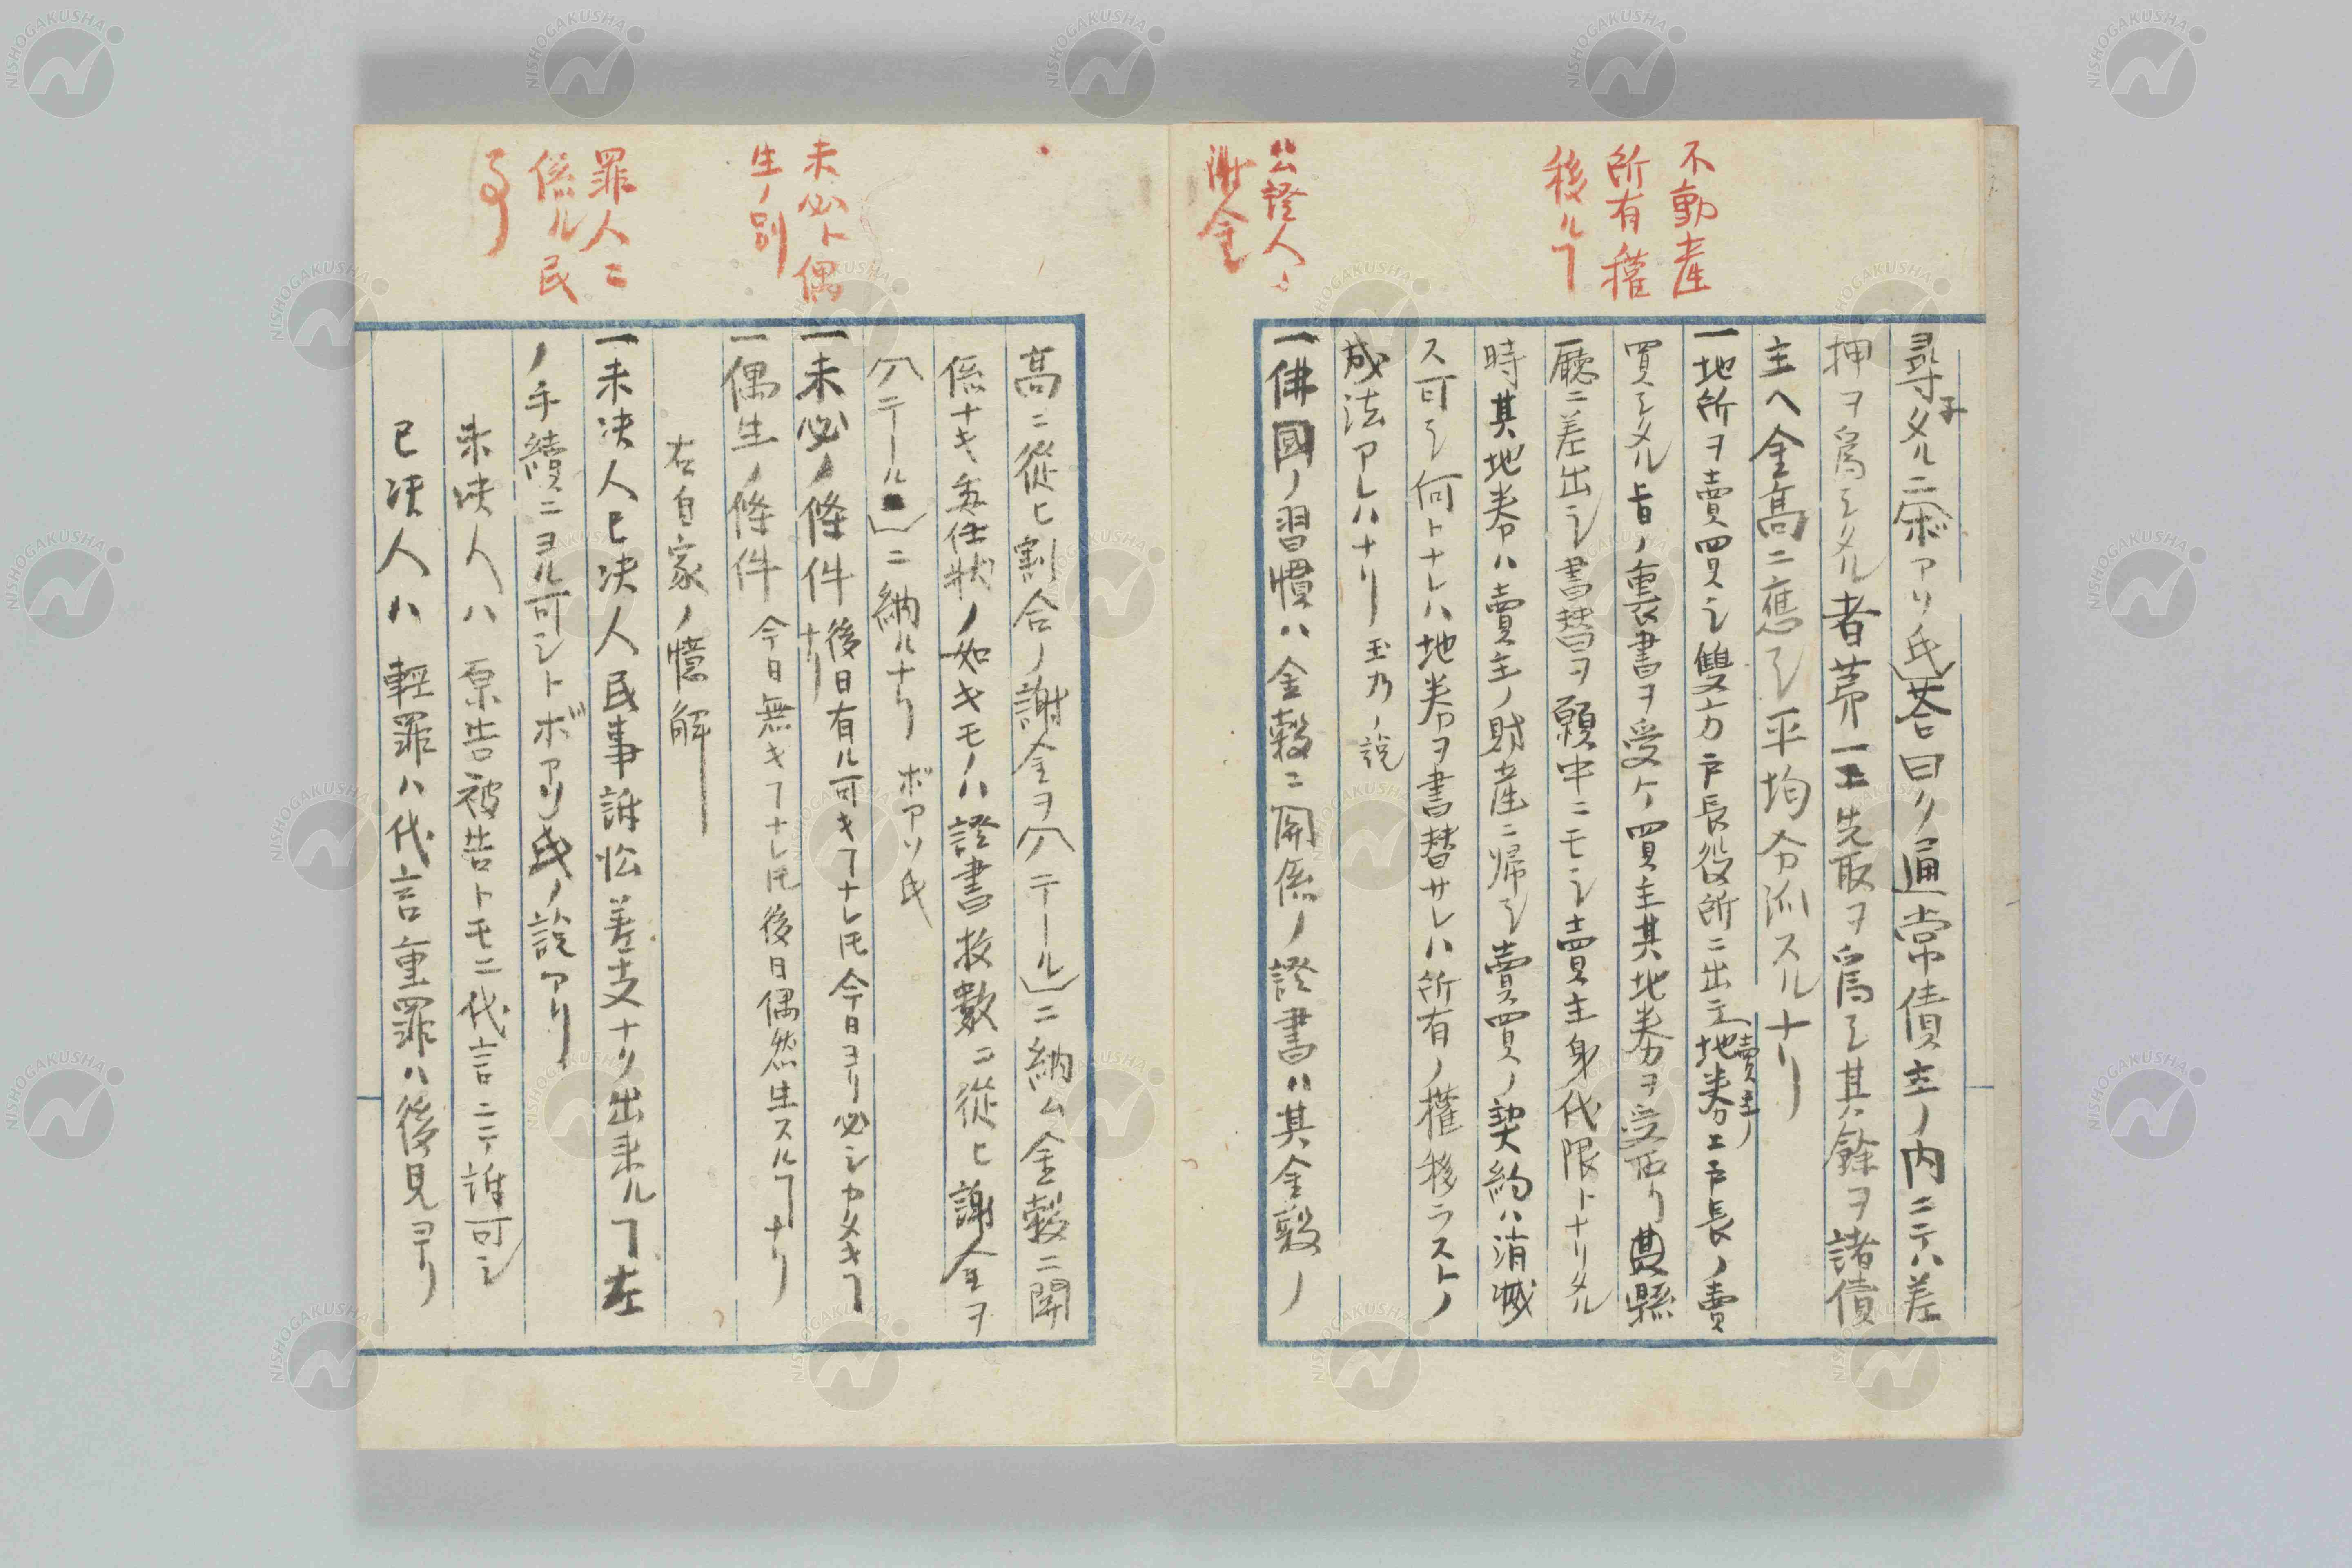 不動産
所有権
移ルヿ
公證人ノ
謝金
尋子タルニボアリ氏答曰ク通常債主ノ内ニテハ差
押ヲ爲シタル者第一ニ先取ヲ爲シ其餘ヲ諸債
主ヘ金高ニ應シ平均分派スルナリ
一地所ヲ賣買シ雙方戸長役所ニ出立賣主ノ地券エ戸長ノ賣
買シタル旨ノ裏書ヲ受ケ買主其地券ヲ受取リ縣
廳ニ差出シ書替ヲ願中ニモシ賣主身代限トナリタル
時其地券ハ賣主ノ財産ニ帰シ賣買ノ契約ハ消滅
ス可シ何トナレハ地券ヲ書替サレハ所有ノ權移ラストノ
成法アレハナリ 玉乃ノ説
一佛國ノ習慣ハ金穀ニ関係ノ證書ハ其金穀ノ
未必ト偶
生ノ別
罪人ニ
係ル民
事
高ニ從ヒ割合ノ謝金ヲ(ノテール)ニ納ム金穀ニ関
係ナキ委任状ノ如キモノハ證書枚數ニ從ヒ謝金ヲ
(ノテール)ニ納ルナリ ボアソ氏
一未必ノ條件 後日有ル可キヿナレ𪜈今日ヨリ必シカタキヿナリ
一偶生ノ條件 今日無キヿナレ𪜈後日偶然生スルヿナリ
右自家ノ憶解
一未决人已决人民事訴訟差支ナク出来ルヿ左
ノ手續ニヨル可シトボアソ氏ノ説アリ
未决人ハ 原告被告トモニ代言ニテ訴可シ
已决人ハ 輕罪ハ代言重罪ハ後見ヨリ